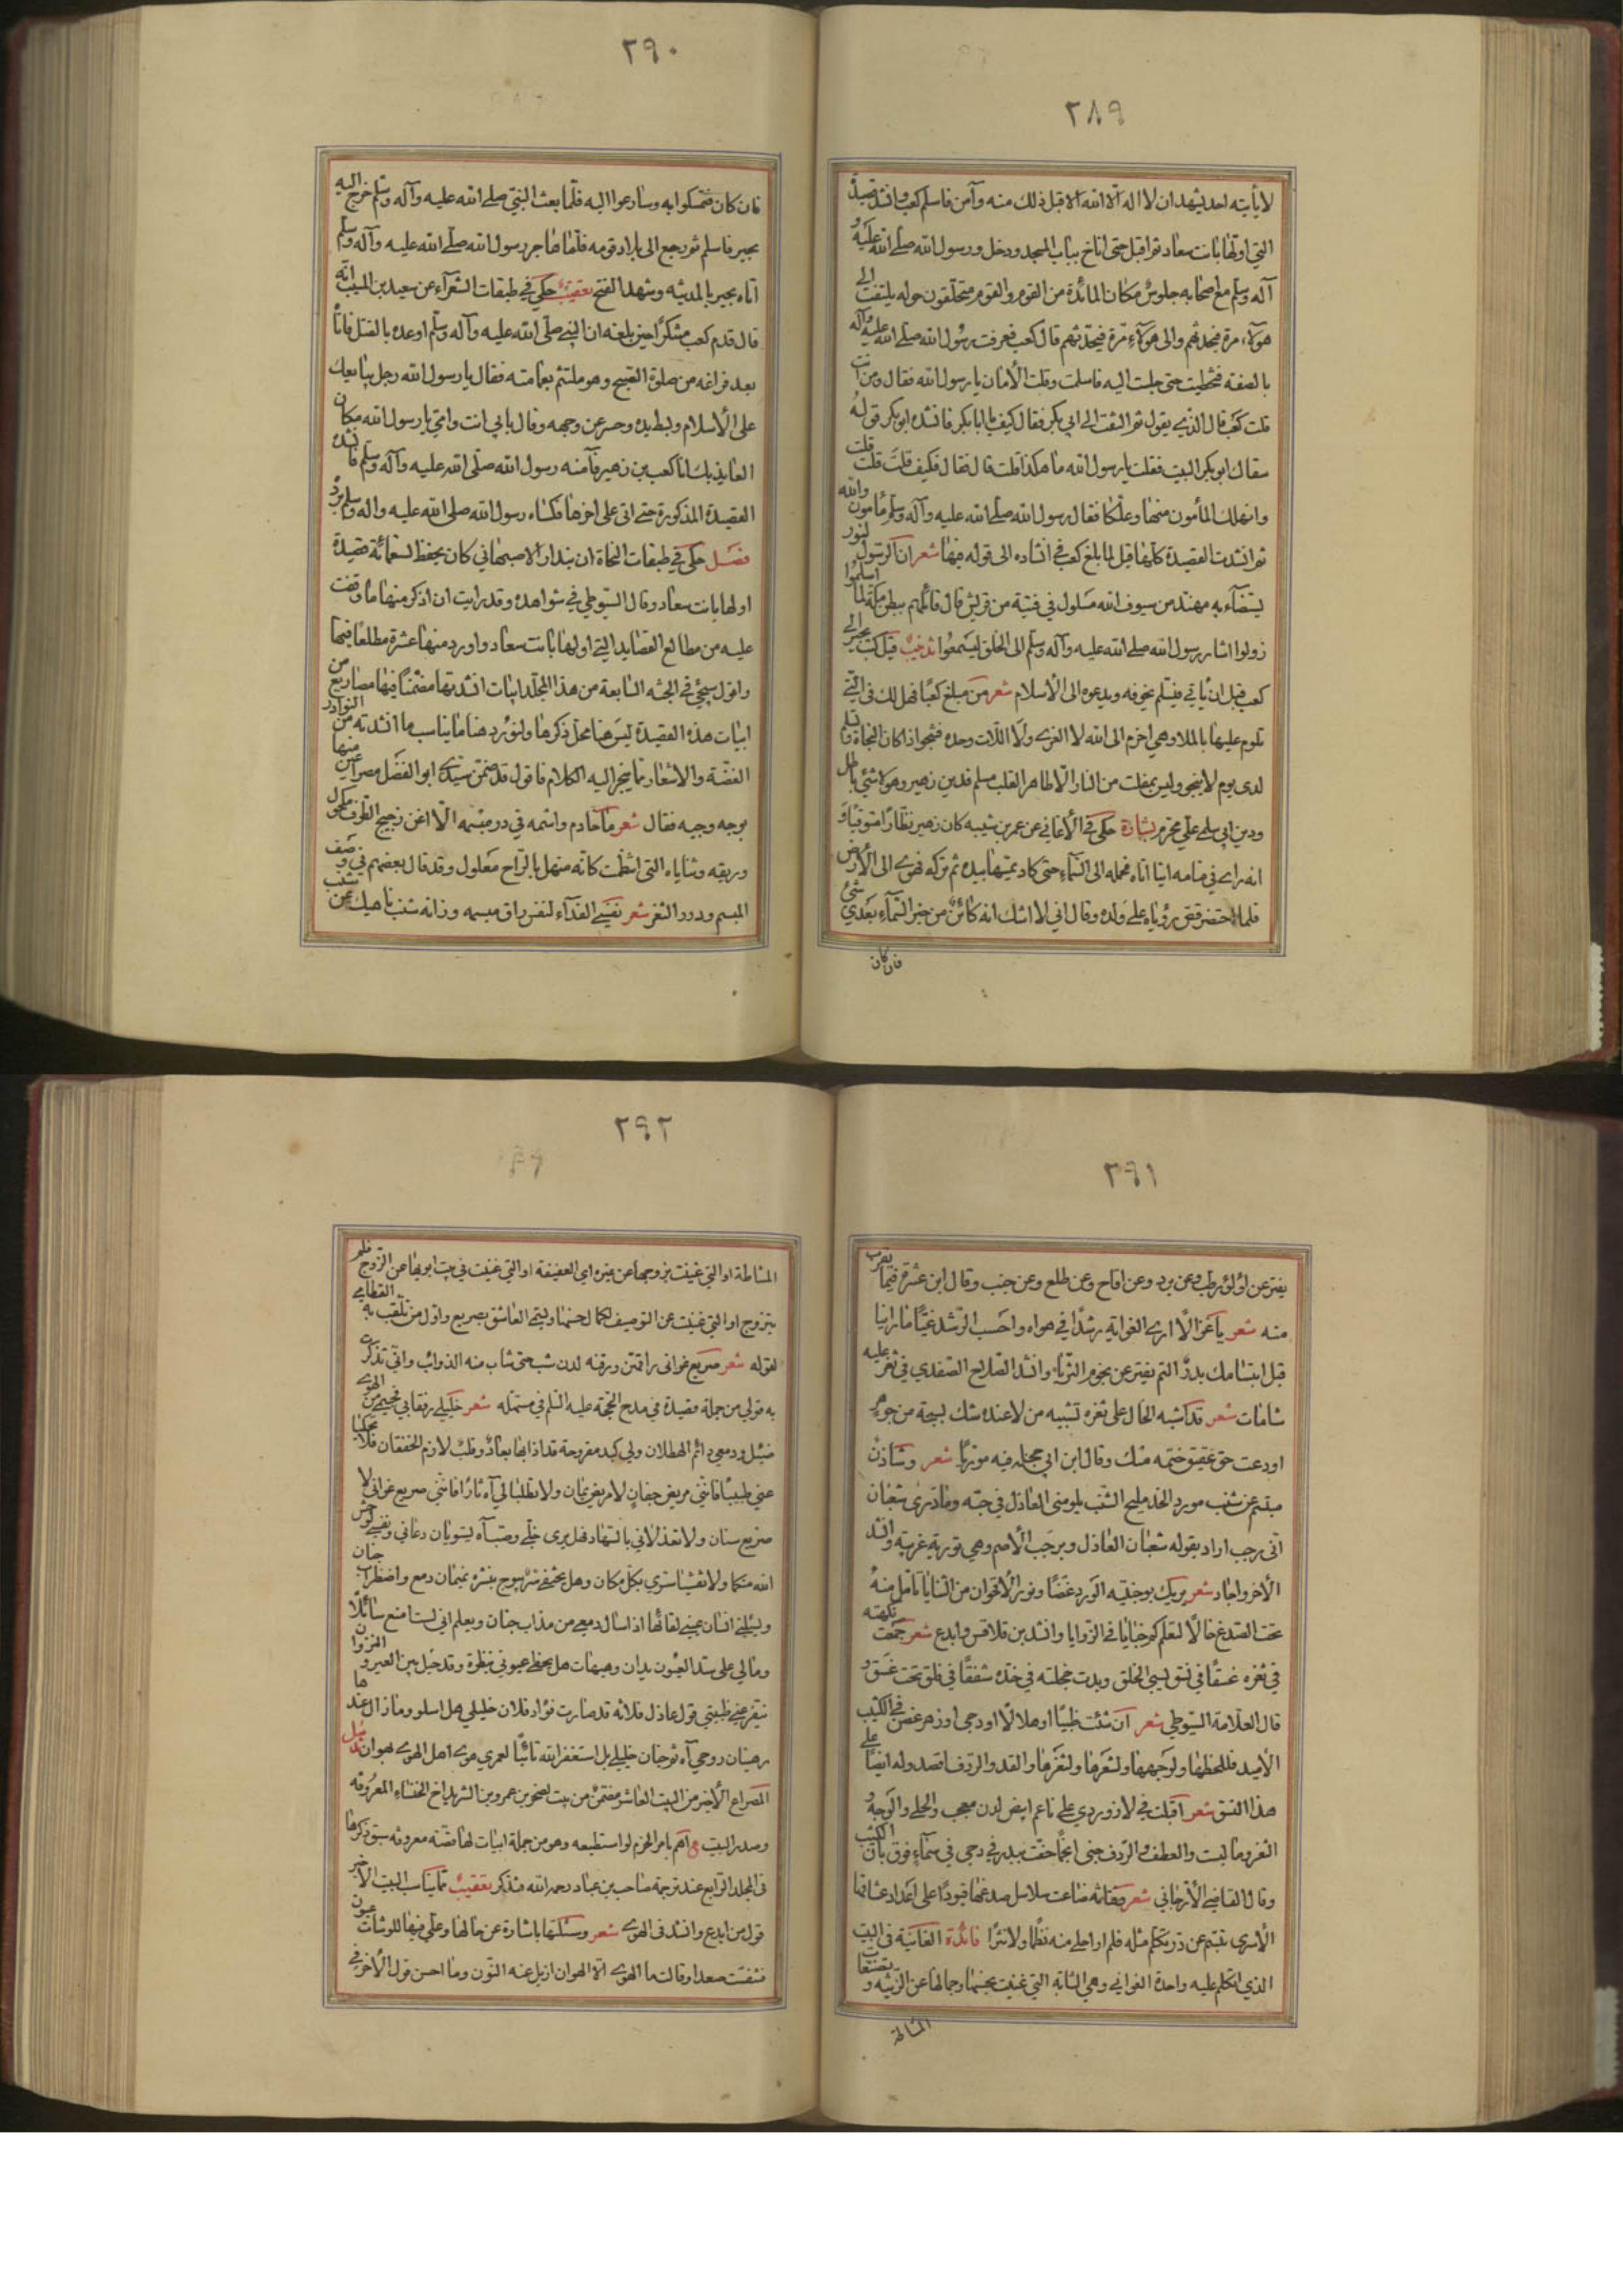 ٢٨٩
لا يأتيه احد يشهد ان لا اله الا الله الا قبل ذلك منه وآمن فاسلم كعب وانشد قصيدة
التي اولها بانت سعاد ثم اقبل حتى اناخ بباب المسجد ودخل ورسول الله صلى الله عليه و
آله وسلم مع اصحابه جلوس مكان المائدة من القوم والقوم متحلقون حوله يلتفت الى
هؤلاء مرة فيحدثهم والى هؤلاء مرة فيحدثهم قال كعب فعرفت رسول الله صلى الله عليه وآله
بالصفة فتخطيت حتى جلست اليه فاسلمت وقلت الأمان يا رسول الله فقال ومن انت
قلت كعب قال الذي يقول ثم التفت الى ابي بكر فقال كيف يا ابا بكر فانشده ابو بكر قوله
سقاك ابو بكر البيت فقلت يا رسول الله ما هكذا قلت قال فقال فكيف قلت قلت
وانهلك المأمون منها وعلكا فقال رسول الله صلى الله عليه وآله وسلم مأمون والله
ثم انشدت القصيدة كلها قيل لما بلغ كعب في انشاده الى قوله فيها شعر ان الرسول لنور
يستضاء به مهند من سيوف الله مسلول في فتية من قريش قال قائلهم ببطن مكة لما اسلموا
زولوا اشار رسول الله صلى الله عليه وآله وسلم الى الخلق ليسمعوا تذنيب قيل كتب بجير الى
كعب قبل ان ياتي فيسلم يخوفه ويدعوه الى الاسلام شعر من مبلغ كعبا فهل لك في التي
تلوم عليها باطلا وهي احزم الى الله لا العزى ولا اللات وحده فتنجو اذا كان النجاة وتسلم
لدى يوم لا ينجو وليس بمفلت من النار الا طاهر القلب مسلم فدين زهير وهو لا شئ باطل
ودين ابي سلمى علي محرم بشارة حكى في الأغاني عن عمر بن شيبه كان زهير نظارا متوقيا و
انه راى في منامه اتيا اتاه فحمله الى السماء حتى كاد يمسها بيده ثم تركه فهوى الى الأرض
فلما احتضر قص رؤياه على ولده وقال اني لا اشك انه كائن من خبر السماء بعدي شئ
فان كان
٢٩٠
فان كان فتمسكوا به وسارعوا اليه فلما بعث النبي صلى الله عليه وآله وسلم خرج اليه
بجير فاسلم ثم رجع الى بلاد قومه فلما هاجر رسول الله صلى الله عليه وآله وسلم
اتاه بجير بالمدينه وشهد الفتح تعقيب حكى في طبقات الشعراء عن سعيد بن المسيب انه
قال قدم كعب متنكرا حين بلغه ان النبي صلى الله عليه وآله وسلم اوعده بالقتل فاتا
بعد فراغه من صلوة الصبح وهو ملتثم بعمامته فقال يا رسول الله رجل يبايعك
على الأسلام وبسط يده وحسر عن وجهه وقال بابي انت وامي يا رسول الله مكان
العايذ بك انا كعب بن زهير فآمنه رسول الله صلى الله عليه وآله وسلم فانشده
القصيدة المذكورة حتى اتى على اخرها فكساه رسول الله صلى الله عليه واله وسلم برد
فصل حكى في طبقات النحاة ان بندار الاصبهاني كان يحفظ تسعمائة قصيدة
اولها بانت سعاد وقال السيوطي في شواهده وقد رايت ان اذكر منها ما وقفت
عليه من مطالع القصايد التي اولها بانت سعاد واورد منها عشرة مطلعا فيها
واقول سيجئ في الجثه السابعة من هذا المجلد ابيات انشدتها مضمنا فيها مصاريع من
ابيات هذه القصيدة ليس هنا محل ذكرها ولنورد هنا ما يناسب ما انشدته من النوادر
الغضة والاشعار مما ينجر اليه الكلام فاقول قد ضمن سيدي ابو الفضل مصراعين منها
بوجه وجيه فقال شعر ما خادم واشمه في در مبسمه الا اغن زجيج الطرف مكحول
وريقه وثناياه التي انتظمت كانه منهل بالراح معلول وقد قال بعضهم في وصف
المبسم ودرر الثغر شعر نفسي الفداء لثغر راق مبسمه وزانه شنب ناهيك عن شنب
٢٩١
يفتر عن لؤلؤ رطب وعن برد وعن اقاح وعن طلع وعن حبب وقال ابن عشرة فيما يقرب
منه شعر يا غزالا ارى الغواية رشدا في هواه واحسب الرشد غيا ما راينا
قبل ابتسامك بدر التم يفتر عن نجوم الثريا وانشد الصلاح الصفدي في ثغر عليه
شامات شعر قد اشبه الخال على ثغره تشبيه من لا عنده شك لسبحة من جوهر
اودعت حق عقيق ختمه مسك وقال ابن ابي حجلة فيه موريا شعر وشاذن
مبتسم عن شنب مورد الخد مليح الشنب يلومني العاذل في حبه وما درى شعبان
اني رجب اراد بقوله شعبان العاذل وبرجب الأصم وهي تورية غريبة وانشد
الآخر واجاد شعر يريك بوجنتيه الورد غضا ونور الأقحوان من الثنايا تأمل منه
تحت الصدغ خالا لتعلم كم خبايا في الزوايا وانشد بن قلاقس وابدع شعر جمعت نكهته
في ثغره عسقا في نسق يسبي الخلق وبدت خجلته في خده شفقا في فلق تحت غسق و
قال العلامة السيوطي شعر ان شئت ظبيا او هلالا او دجى او زهر غصن في الكثيب
الأميد فللحظها ولوجهها ولشعرها ولثغرها والقد والردف اقصد وله ايضا على
هذا النسق شعر اقبلت في لازوردي على ناعم ابيض لدن معجب والحلي والوجه و
الثغر وما لبست والعطف والردف جنى انجما حفت ببدر في دجى في سماء فوق بان الكثيب
وقال القاضي الأرجاني شعر
الأسرى تبتسم عن در تكلم مثله فلم ار احلى منه نظما ولا نثرا فائدة الغانية في البيت
الذي اتكلم عليه واحدة الغواني وهي الشابة التي غنيت بحسنها وجمالها عن الزينه و
٢٩٢
المشاطة او التي غنيت بزوجها عن غيره اي العفيفة او التي غنيت في بيت ابويها عن الزوج فلم
تتزوج او التي غنيت عن التوصيف لكمال حسنها ويسمى العاشق بصريع واول من تلقب به القطامي
لقوله شعر صريع غوانى راقهن ورقنه لدن شب حتى شاب منه الذوائب واني تذكرت
به قولي من جملة قصيدة في مدح الحجة عليه السلم في مستهله شعر خليلي رفقا بي فجسمي من الهوى
ضئيل ودمعي دائم الهطلان ولي كبد مقروحة قد اذابها بعاد وقلب لازم الخفقان فلا تحكيا
عني طبيبا فانني مريض جفان لا مريض يمان ولا تطلبا لي آه ثارا فانني صريع غوانى لا
صريع سنان ولا تعذلاني بالسهاد فهل يرى خلي وصب آه يستويان دعاني ونفسي
الله منكما ولا تفشيا سري بكل مكان وهل يختفي سر يبوح بنشره نميمان دمع واضطراب جنان
ويسئلني انسان عيني لقائها اذا سال دمعي من مذاب جنان ويعلم اني لست امنع سائلا
ومالي على سد العيون يدان وهيهات هل يحظى عيوني بنظرة وقد حيل بين العير والنزوان
رهينان روحي آه ثم جنان خليلي بل استغفر الله تائبا لعمري هوى اهل الهوى لهوان
المصراع الأخير من البيت العاشر مضمن من بيت لصخر بن عمرو بن الشريد اخ الخنساء المعروفه
وصدر البيت اهم بامر الحزم لو استطيعه وهو من جملة ابيات لها قصة معروفه سبق ذكرها
في المجلد الرابع عند ترجمة صاحب بن عباد رحمه الله فتذكر تعقيب مما يناسب البيت الأخير
قول من ابدع وانشد في الهوى شعر وسئلتها باشارة عن حالها وعلي فيها للوشاة عيون
فتنفست صعدا وقالت ما الهوى الا الهوان ازيل عنه النون وما احسن قول الأخر في